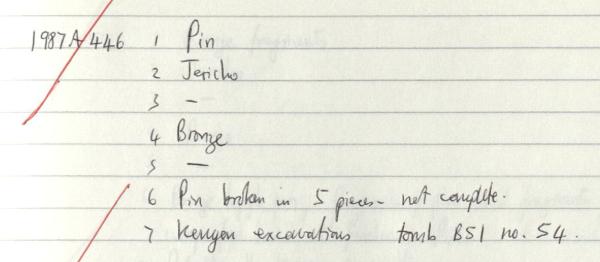 1987A446 1 Pin
2 Jericho
3 –
4 Bronze
5 –
6 Pin broken in 5 pieces - not complete.
7 Kenyon excavations tomb B51 no. 54.